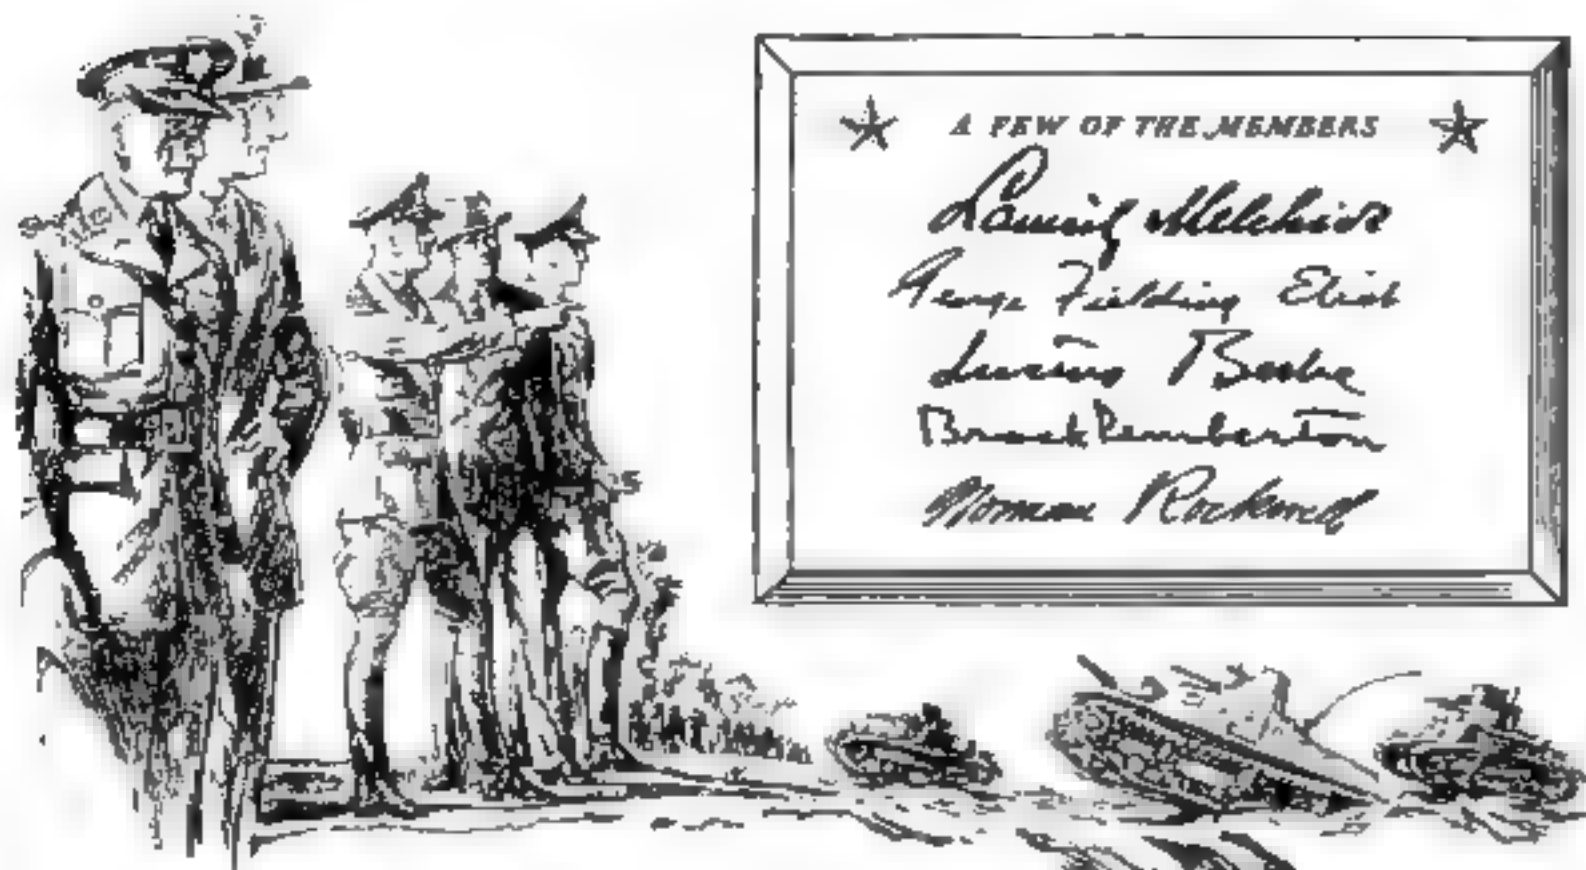 A FEW OF THE MEMBERS
Lauritz Melchior
George Fielding Eliot
Lucius Beebe
Brock Pemberton
Norman Rockwell